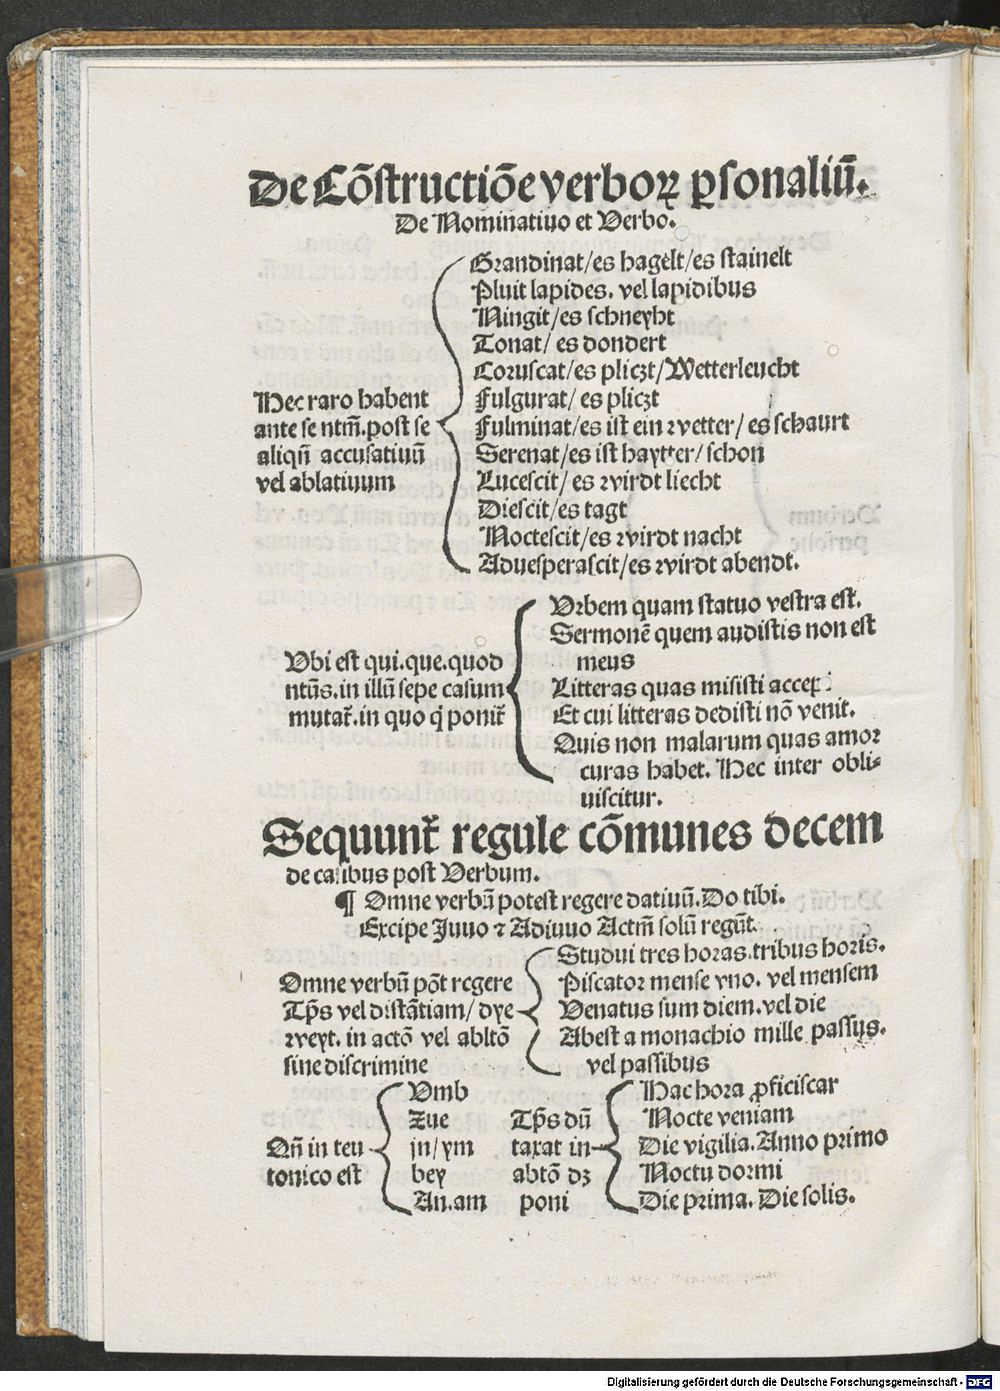 De Cōſtructiōe verboꝝ ꝑſonaliū.
De Nominatiuo et Verbo.
Hec raro habent
ante se ntm̄. post se
aliqn̄ accusatiuū
vel ablatiuum
Grandinat/es hagelt/es stainelt
Pluit lapides. vel lapidibus
Ningit/es schneyht
Tonat/ es dondert
Coruscat/es pliczt/Wetterleucht
Fulgurat/ es pliczt
Fulminat/es ist ein wetter/ es schaurt
Serenat/es ist haytter/schon
Lucescit/ es wirdt liecht
Diescit/es tagt
Noctescit/es wirdt nacht
Aduesperascit/es wirdt abendt.
Vbi est qui.que.quod
ntūs.in illū sepe casum
mutat̄.in quo q̇ ponit̄
Vrbem quam statuo vestra est.
Sermonē quem audistis non est
meus
Litteras quas misisti
Et cui litteras dedisti nō venit.
Quis non malarum quas amor
curas habet. Hec inter obli⸗
uiscitur.
Sequunt̄ regule cōmunes decem
de casibus post Verbum.
¶ Omne verbū potest regere datiuū. Do tibi.
Excipe Juuo ⁊ Adiuuo Actm̄ solū regūt.
Omne verbū pōt regere
Tp̄s vel distātiam/ dye
weyt. in actō vel abltō
sine discrimine
Studui tres horas.tribus horis.
Piscator mense vno. vel mensem
Venatus sum diem.vel die
Abest a monachio mille passus.
vel passibus
Qn̄ in teu
tonico est
Vmb
Zue
jn/ym
bey
An.am
Tp̄s dū
taxat in
abtō dꝫ
poni
Hac hora ꝓficiscar
Nocte veniam
Die vigilia. Anno primo
Noctu dormi
Die prima. Die solis.
Digitalisierung gefördert durch die Deutsche Forschungsgemeinschaft - DFG